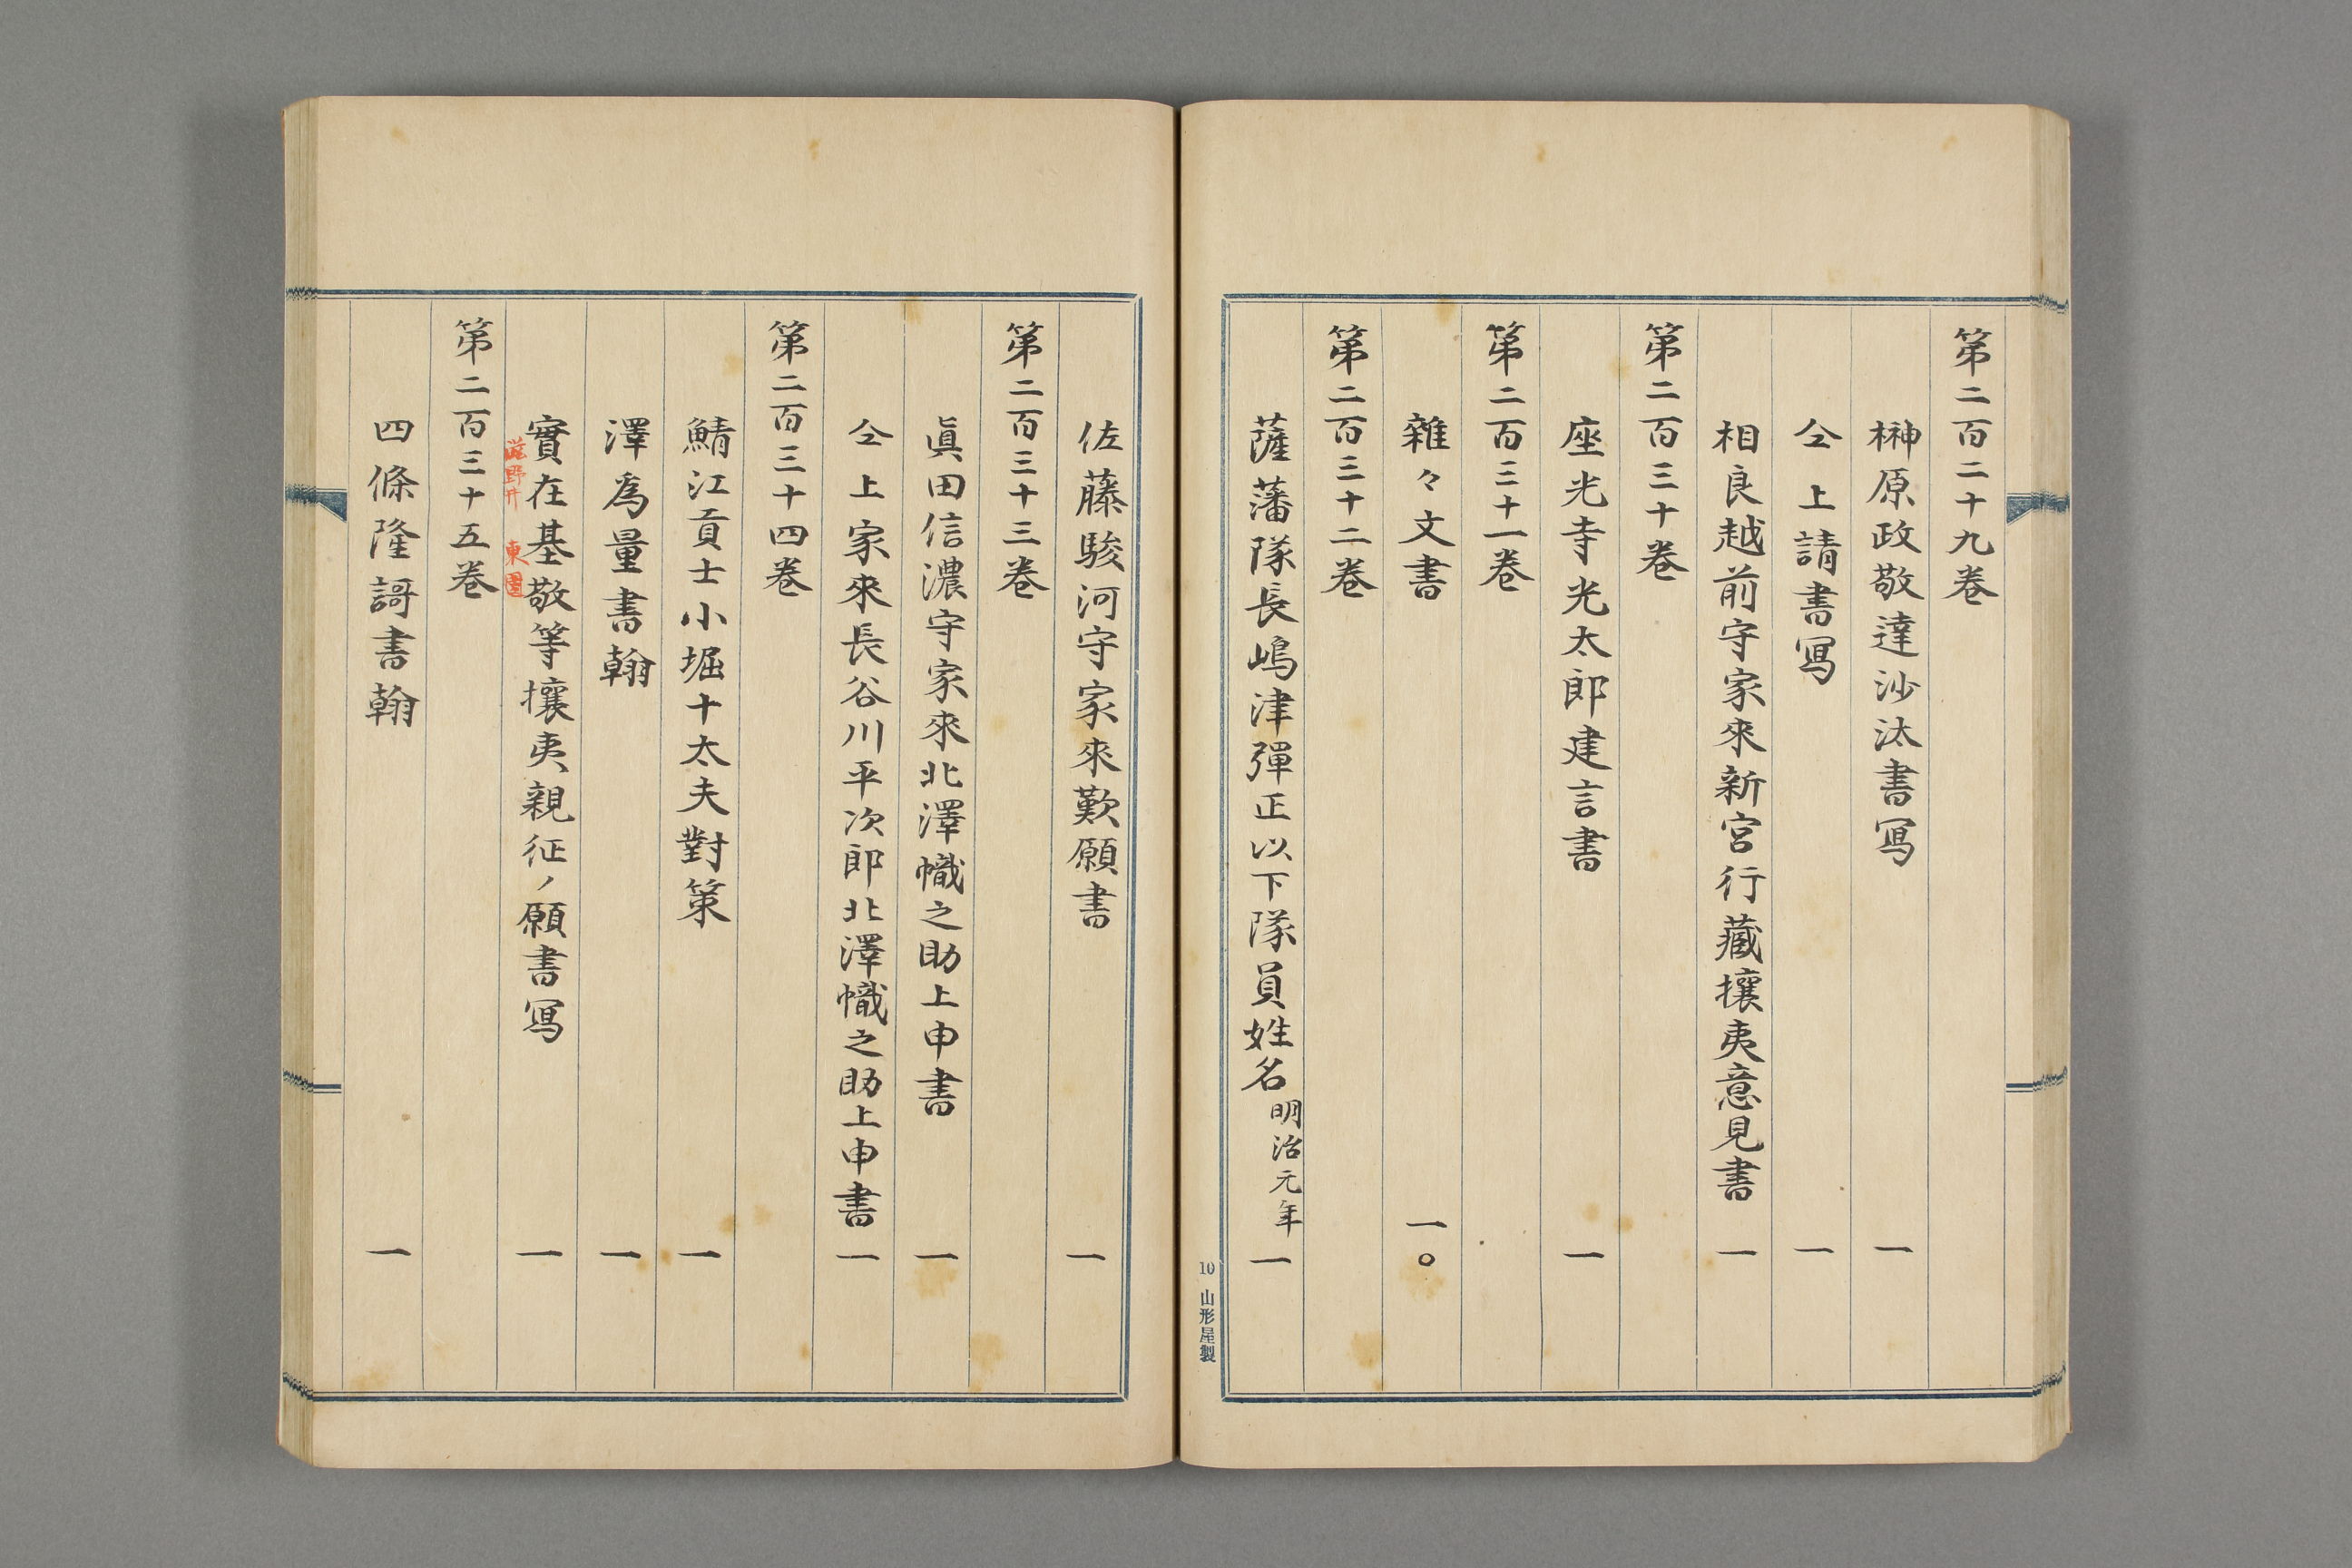 第二百二十九巻
榊原政敬達沙汰書写 一
仝上請書写 一
相良越前守家來新宮行藏攘夷意見書 一
第二百三十巻
座光寺光太郎建言書 一
第二百三十一巻
雜々文書 一〇
第二百三十二巻
薩藩隊長嶋津彈正以下隊員姓名 明治元年 一
10 山形屋製
佐藤駿河守家來歎願書 一
第二百三十三巻
眞田信濃守家來北澤幟之助上申書 一
仝上家來長谷川平次郎北澤幟之助上申書 一
第二百三十四巻
鯖江貢士小堀十太夫對策 一
澤為量書翰 一
實在基敬等攘夷親征ノ願書写 一
滋野井 東園
第二百三十五巻
四條隆謌書翰 一